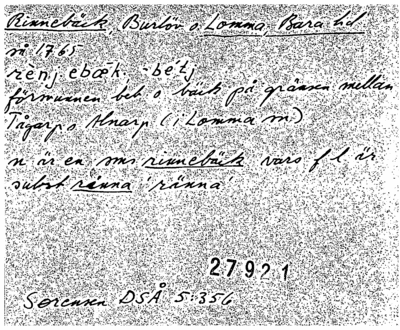 Rinnebäck, Burlöv o. Lomma, Bara hd
rènj ebæk, -bétj
försvunnen beb o bäck på gränsen mellan
Tågarp o Alnarp (i Lomma sn)
n är en sms rinnebäck vars f l är
subst ränna 'ränna'
27921
Sørensen DSÅ 5:356